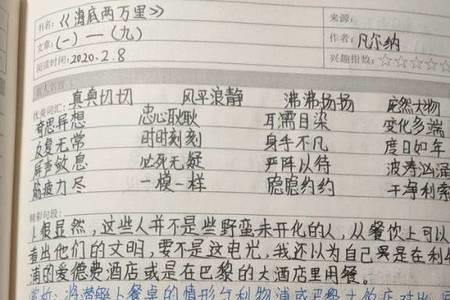 书名:《海底两万里》 来源:
文章:(一)—(九) 作者:凡尔纳
阅读时间:2020.2.8 兴趣指数:☆☆☆☆☆
优美词汇:真真切切 风平浪静 沸沸扬扬 庞然大物
奇思异想 忠心耿耿 耳濡目染 变化多端
反复无常 时时刻刻 身手不凡 度日如年
屏声敛息 必死无疑 严阵以待 波涛汹涌
筋疲力尽 一模一样 隐隐约约 干净利索
精彩句段:
1.很显然,这些人并不是些野蛮未开化的人,从餐饮上可以
看出他们的文明,要不是这电光,我还以为自己冥是在利物
浦的爱德费酒店或是在巴黎的大酒店里用餐。